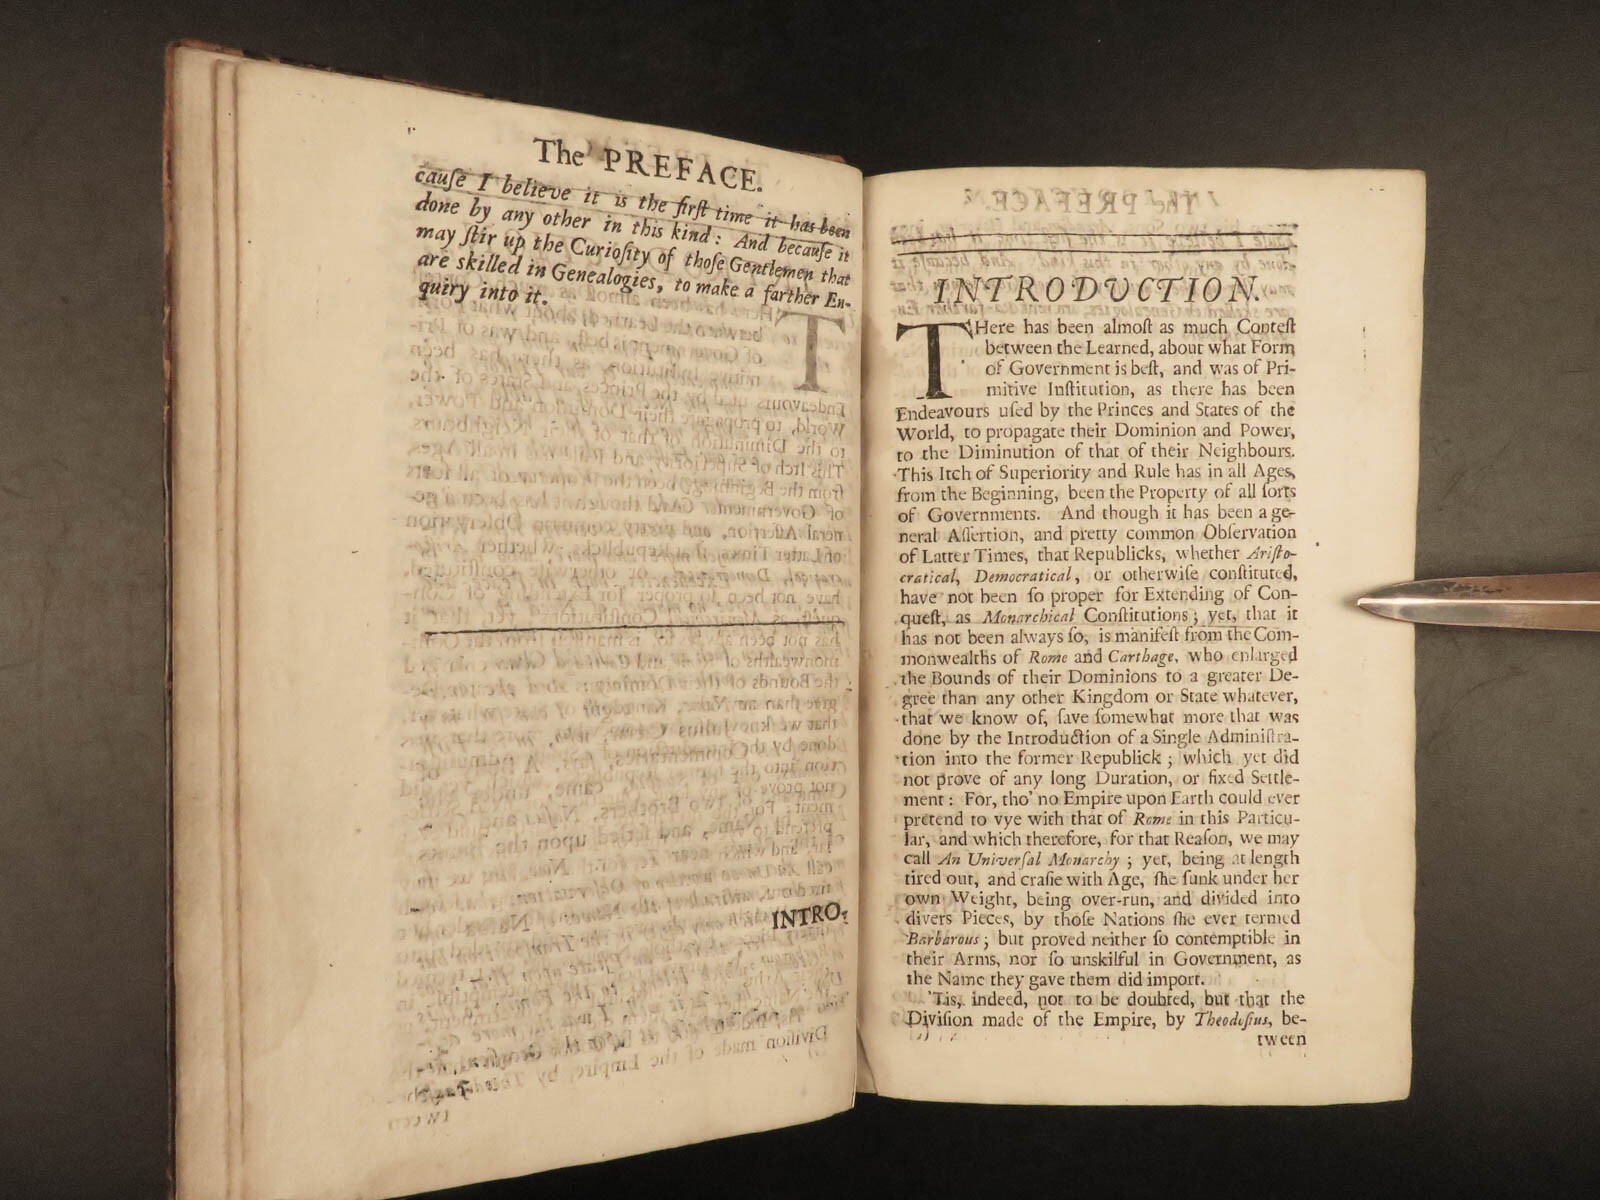 The PREFACE.
cauſe I believe it is the firſt time it has been
done by any other in this kind: And becauſe it
may ſtir up the Curioſity of thoſe Gentlemen that
are skilled in Genealogies, to make a farther En-
quiry into it.
INTRO-
INTRODUCTION.
THere has been almoſt as much Conteſt
between the Learned, about what Form
of Government is beſt, and was of Pri-
mitive Inſtitution, as there has been
Endeavours uſed by the Princes and States of the
World, to propagate their Dominion and Power,
to the Diminution of that of their Neighbours.
This Itch of Superiority and Rule has in all Ages,
from the Beginning, been the Property of all ſorts
of Governments. And though it has been a ge-
neral Aſſertion, and pretty common Obſervation
of Latter Times, that Republicks, whether Ariſto-
cratical, Democratical, or otherwiſe conſtituted,
have not been ſo proper for Extending of Con-
queſt, as Monarchical Conſtitutions; yet, that it
has not been always ſo, is manifeſt from the Com-
monwealths of Rome and Carthage, who enlarged
the Bounds of their Dominions to a greater De-
gree than any other Kingdom or State whatever,
that we know of, ſave ſomewhat more that was
done by the Introduction of a Single Adminiſtra-
tion into the former Republick; which yet did
not prove of any long Duration, or fixed Settle-
ment: For, tho' no Empire upon Earth could ever
pretend to vye with that of Rome in this Particu-
lar, and which therefore, for that Reaſon, we may
call An Univerſal Monarchy; yet, being at length
tired out, and craſie with Age, ſhe ſunk under her
own Weight, being over-run, and divided into
divers Pieces, by thoſe Nations ſhe ever termed
Barbarous; but proved neither ſo contemptible in
their Arms, nor ſo unskilful in Government, as
the Name they gave them did import.
'Tis, indeed, not to be doubted, but that the
Diviſion made of the Empire, by Theodoſius, be-
tween